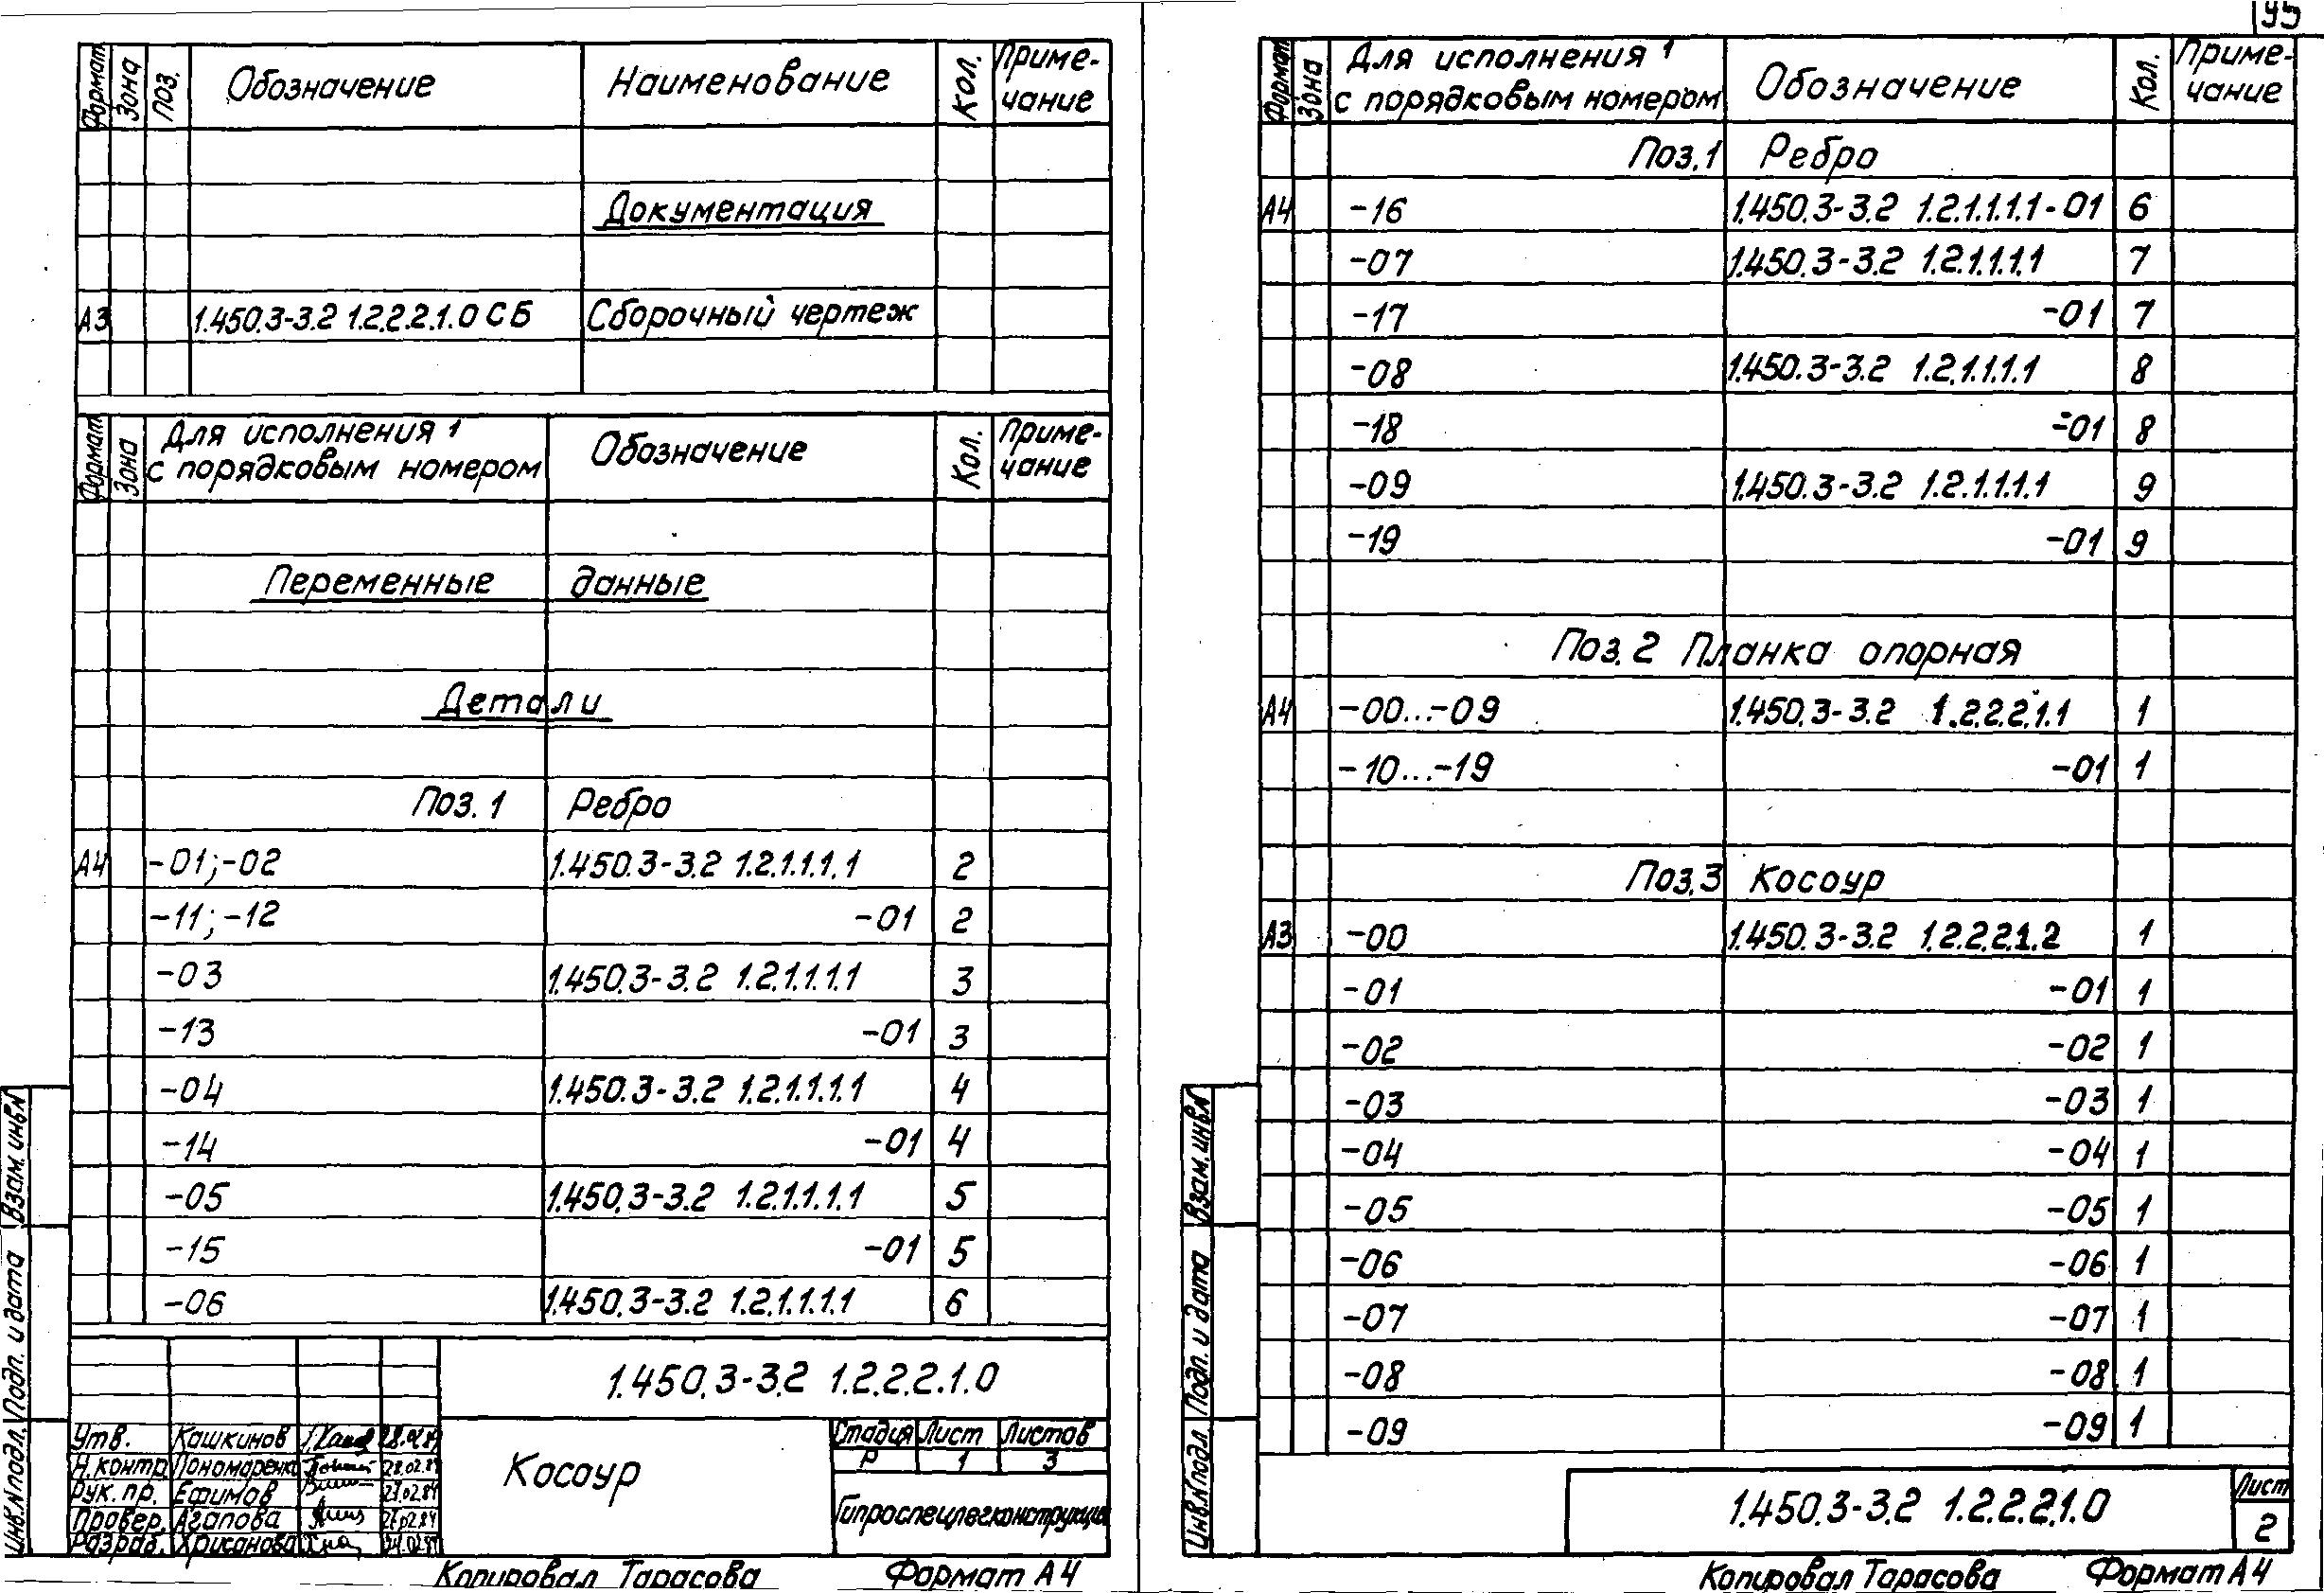 Формат Зона Поз. Обозначение Наименование Кол. Приме-
чание
Документация
А3 1.450.3-3.2 1.2.2.2.1.0 СБ Сборочный чертеж
Формат Зона Для исполнения 1 Обозначение Кол. Приме-
с порядковым номером чание
Переменные данные
Детали
Поз. 1 Ребро
А4 -01; -02 1.450.3-3.2 1.2.1.1.1.1 2
-11; -12 -01 2
-03 1.450.3-3.2 1.2.1.1.1.1 3
-13 -01 3
-04 1.450.3-3.2 1.2.1.1.1.1 4
-14 -01 4
-05 1.450.3-3.2 1.2.1.1.1.1 5
-15 -01 5
-06 1.450.3-3.2 1.2.1.1.1.1 6
1.450.3-3.2 1.2.2.2.1.0
Утв. Кашкинов
Н.контр. Пономаренко 28.02.84
Рук. пр. Ефимов
Провер. Агапова
Разраб. Хрисанова
Косоур
Стадия Лист Листов
Р 1 3
Гипроспецлегконструкция
Взам. инв.N
Подп. и дата
Инв.N подл.
Копировал Тарасова Формат А4
95
Формат Зона Для исполнения 1 Обозначение Кол. Приме-
с порядковым номером чание
Поз. 1 Ребро
А4 -16 1.450.3-3.2 1.2.1.1.1.1-01 6
-07 1.450.3-3.2 1.2.1.1.1.1 7
-17 -01 7
-08 1.450.3-3.2 1.2.1.1.1.1 8
-18 -01 8
-09 1.450.3-3.2 1.2.1.1.1.1 9
-19 -01 9
Поз. 2 Планка опорная
А4 -00...-09 1.450.3-3.2 1.2.2.2.1.1 1
-10...-19 -01 1
Поз. 3 Косоур
А3 -00 1.450.3-3.2 1.2.2.2.1.2 1
-01 -01 1
-02 -02 1
-03 -03 1
-04 -04 1
-05 -05 1
-06 -06 1
-07 -07 1
-08 -08 1
-09 -09 1
1.450.3-3.2 1.2.2.2.1.0
Лист
2
Взам. инв.N
Подп. и дата
Инв.N подл.
Копировал Тарасова Формат А4